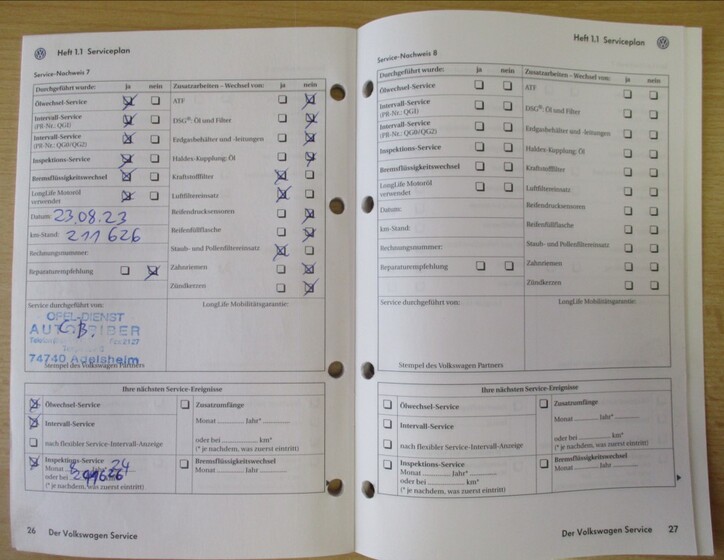 Heft 1.1 Serviceplan
Service-Nachweis 7
Durchgeführt wurde: ja nein
Ölwechsel-Service
Intervall-Service
(PR-Nr.: QG1)
Intervall-Service
(PR-Nr.: QG0/QG2)
Inspektions-Service
Bremsflüssigkeitswechsel
LongLife Motoröl
verwendet
Datum: 23.08.23
km-Stand: 211 626
Rechnungsnummer:
Reparaturempfehlung
Zusatzarbeiten – Wechsel von: ja nein
ATF
DSG®: Öl und Filter
Erdgasbehälter und -leitungen
Haldex-Kupplung: Öl
Kraftstoffilter
Luftfiltereinsatz
Reifendrucksensoren
Reifenfüllflasche
Staub- und Pollenfiltereinsatz
Zahnriemen
Zündkerzen
Service durchgeführt von:
OPEL-DIENST
74740 Adelsheim
Stempel des Volkswagen Partners
LongLife Mobilitätsgarantie:
Ihre nächsten Service-Ereignisse
Ölwechsel-Service
Intervall-Service
nach flexibler Service-Intervall-Anzeige
Inspektions-Service
Monat 8 Jahr* 24
oder bei km*
(* je nachdem, was zuerst eintritt)
Zusatzumfänge
Monat Jahr*
oder bei km*
(* je nachdem, was zuerst eintritt)
Bremsflüssigkeitswechsel
Monat Jahr*
26 Der Volkswagen Service
Heft 1.1 Serviceplan
Service-Nachweis 8
Durchgeführt wurde: ja nein
Ölwechsel-Service
Intervall-Service
(PR-Nr.: QG1)
Intervall-Service
(PR-Nr.: QG0/QG2)
Inspektions-Service
Bremsflüssigkeitswechsel
LongLife Motoröl
verwendet
Datum:
km-Stand:
Rechnungsnummer:
Reparaturempfehlung
Zusatzarbeiten – Wechsel von: ja nein
ATF
DSG®: Öl und Filter
Erdgasbehälter und -leitungen
Haldex-Kupplung: Öl
Kraftstoffilter
Luftfiltereinsatz
Reifendrucksensoren
Reifenfüllflasche
Staub- und Pollenfiltereinsatz
Zahnriemen
Zündkerzen
Service durchgeführt von:
Stempel des Volkswagen Partners
LongLife Mobilitätsgarantie:
Ihre nächsten Service-Ereignisse
Ölwechsel-Service
Intervall-Service
nach flexibler Service-Intervall-Anzeige
Inspektions-Service
Monat Jahr*
oder bei km*
(* je nachdem, was zuerst eintritt)
Zusatzumfänge
Monat Jahr*
oder bei km*
(* je nachdem, was zuerst eintritt)
Bremsflüssigkeitswechsel
Monat Jahr*
Der Volkswagen Service 27